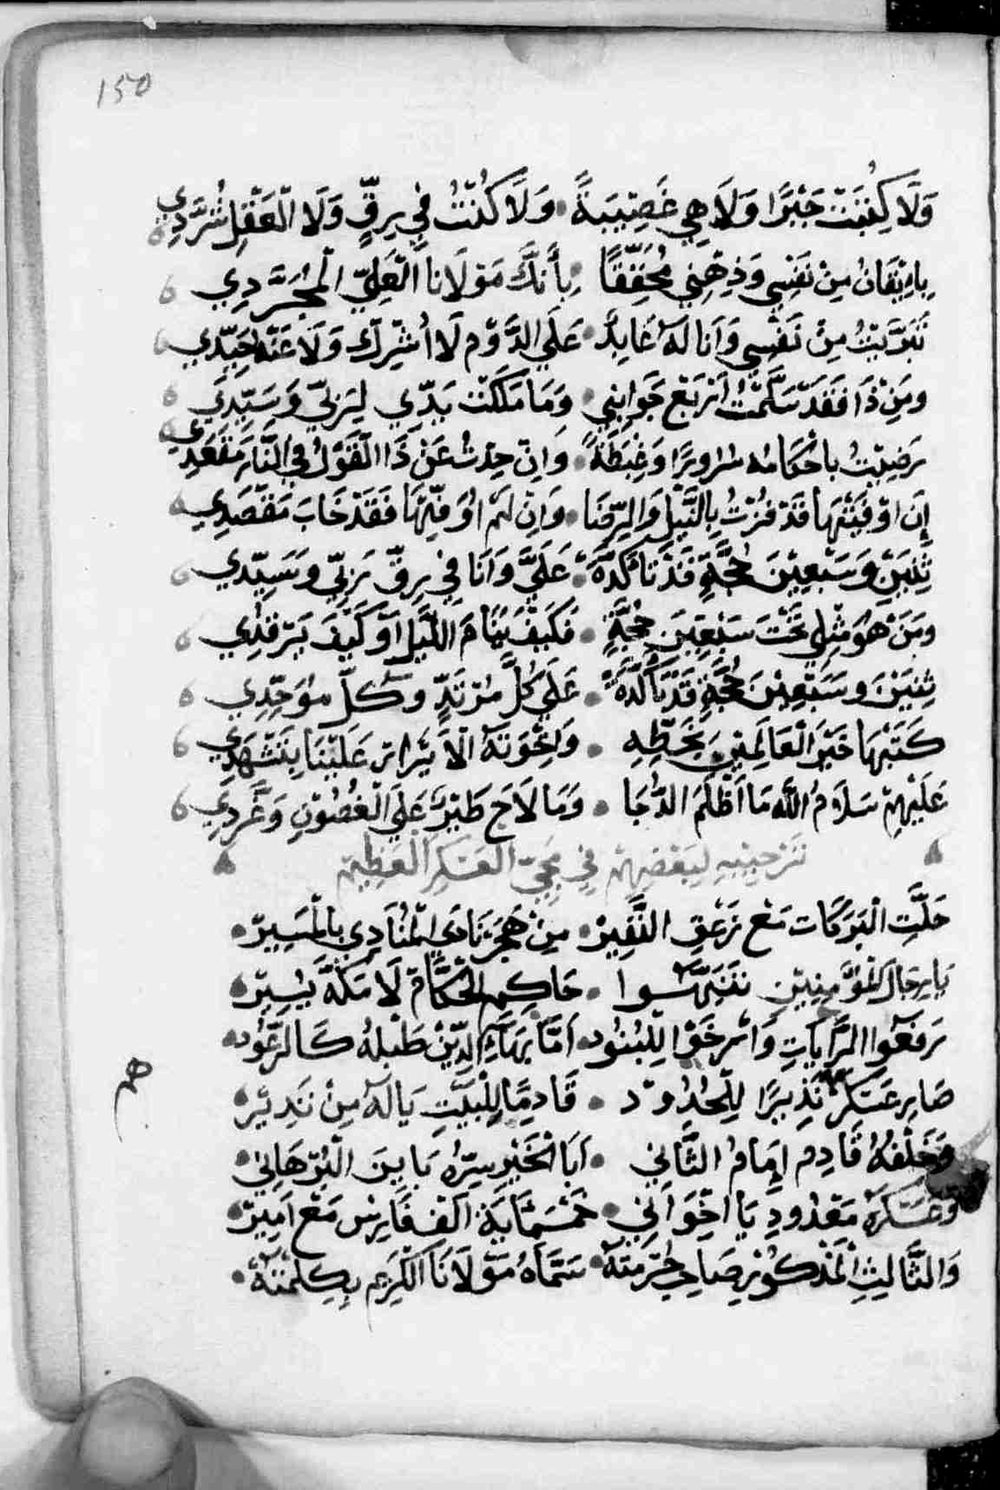 150
وَلَا كُتِبَتْ جَبْرًا وَلَا هِي غَصِيْبَةً • وَلَا كُنْتُ فِي رِقٍّ وَلَا الْعَقْلِ شُرَّدِي
بِايْقَانِ مِنْ نَفْسِي وَذِهْنِي مُحَقِّقًا • بِأَنَّكَ مَوْلَانَا الْعَلِيّ الْمُجَرَّدِي
تَبَرَّيْتُ مِنْ نَفْسِي وَانَا لَهُ عَابِدٌ • عَلَى الدَّوْم لَا اُشْرِك وَلَا عَنْهُ حَيِّدِي
ومَنْ ذَا فَقَدْ سَلَّمْتُ اَرْبَعْ جَوَانِبِي • وَمَا مَلَكَتْ يَدِّي لِرَبِّي وَسَيِّدِي
رَضِيْتُ باحْكَامه سُرُورًا وَغِبْطَةً • وَانْ حِدْتُ عَنْ ذَا القَوْلُ فِي النَّار مَقْعَدِي
اِنْ اوْفَيْتُهَا قَدْ فُزْتُ بِالنَّيْلِ وَالرِّضَا • وَانْ لَمْ اُوَفِّيْهَا فَقَدْ خَابَ مَقْصَدِي
ثِنِيْنِ وَسَبْعِيْنَ حُجَّةٍ قَدْ تَأَكَّدَة • عَلَيَّ وَانَا فِي رِقّ رَبِّي وسَيِّدِي
ومَنْ هُوَ مِثْلِي تَحْتَ سَبْعِيْنَ حُجَّةٍ • فَكَيْفَ يَنَامَ اللَّيْلَ اَوْ كَيْفَ يَرْقُدِي
ثِنِيْنَ وسَبْعِيْنَ حُجَّةٍ قَدْ تَأَكَّدَة • عَلَى كُلّ مُرْتَدٍّ وكلّ مُوَحِّدِي
كَتَبْهَا خَيْرَ الْعَالَمِيْنِ بِخَطِّهِ • وَاِخْوَتَهُ الْابْرَار عَلَيْنَا بِتَشْهَدِي
عَلَيْهِمْ سَلَامُ اللّه مَا اَظْلَمَ الدُّجَا • وَمَا لَاحَ طَيْرٌ عَلَى الْغُصُوْنِ وَغَرَّدِي
لِبَعْضِهِمْ فِي مَجِيّ العَسْكَرِ الْعَظِيْم
حَلَّتِ الْبَرَكَات مَعْ زَعْقِ النَّفِيرْ • مِنْ هَجَرْ نَادَى الْمُنَادِي بِالْمَسِيرْ •
يَا رِجَال الْمُؤْمِنِيْن • حَاكِم الْحُكَّامْ لَا مَكَّةْ يُسِيْرْ •
رَفَعُوا الرَّايَاتِ وَارْخَوْا لِلْبُنُود • اَمَّا بَهَاءِ الدِّيْنْ طَبْلهُ كَالرُّعُود •
صَارِ عَسْكَرْ نَذِيرًا لِلْحُدُوْد • قَادِمًا لِلْبَيْتِ يَا لَهُ مِنْ نَذِيْر •
وَخَلْفهُ قَادِم اِمَامُ الثَّانِي • اَبَا الخَيْر سِرُّه بَايِنَ الْبُرْهَانِي •
وَعَسْكَرَهْ مَعْدُودِ يَا اخْوَانِي • خَمْسمَايَة اَلْف فَارِسْ مَعْ اَمِيْرْ •
وَالثَّالِثِ الْمَذْكُوْر صَاحِ حُرْمَتَهْ • سَمَّاهُ مَوْلَانَا الْكَرِيْم بِكِلْمَتِهْ •